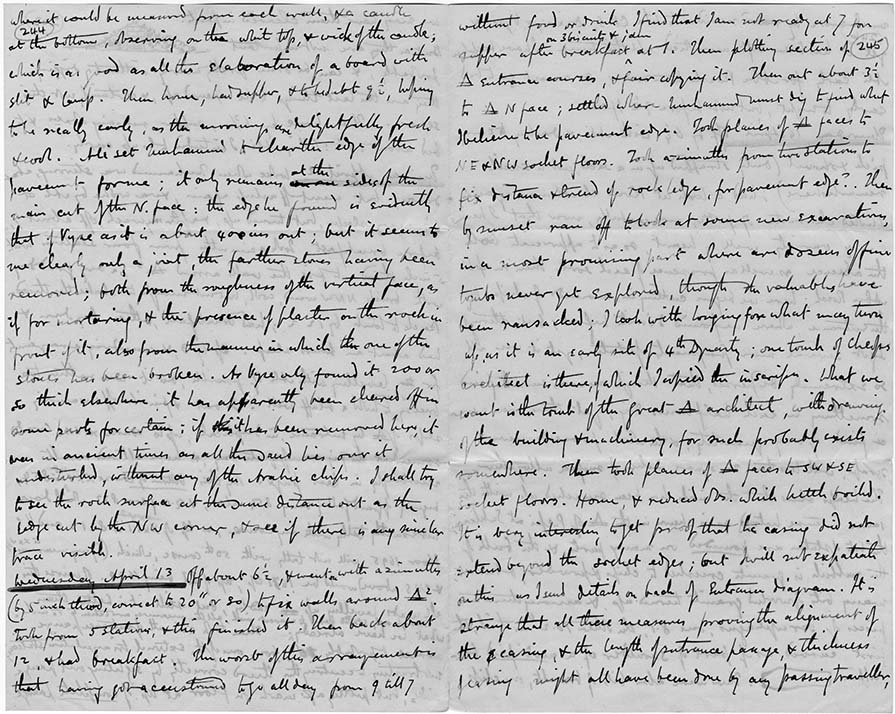 where it could be measured from each wall, & a candle
244
at the bottom, observing on the whit top, & wick of the candle;
which is as good as all the elaboration of a board with
slit & lamp. Then home, had supper, & to bed abt 9½, hoping
to be really early, as the mornings are delightfully fresh
& cool. Ali set Muhammed to clear the edge of the
pavement for me; it only remains at the sides of the
main cut of the N. face: the edge he found is evidently
that of Vyse as it is about 400 ins out; but it seems to
me clearly only a joint, the farther stones having been
removed; both from the roughness of the vertical face, as
if for mortaring, & the presence of plaster on the rock in
front of it, also from the manner in which the one of the
stones has been broken. As Vyse only found it 200 or
so thick elsewhere it has apparently been cleared off in
some parts for certain; if it has been removed here, it
was in ancient times as all the sand lies over it
undisturbed, without any of the Arabic chips. I shall try
to see the rock surface at the same distance out as the
ledge cut by the NW corner, & see if there is any similar
trace visible.
Wednesday April 13 Off about 6½, & went with azimuths
(by 5 inch theod, correct to 20" or 30) to fix walls around Δ².
Took from 5 stations, & this finished it. Then back about
12, & had breakfast. The worst of this arrangement is
that having got accustomed to go all day from 9 till 7
without food or drink I find that I am not ready at 7 for
on 3 biscuits & jam
supper after breakfast at 1. Then plotting section of 245
Δ entrance courses, & fair copying it. Then out about 3½
to Δ N face; settled where Muhammed must dig to find what
I believe to be pavement edge. Took planes of Δ faces to
NE & NW socket floors. Took azimuths from two stations to
fix distance & trend of rock edge, for pavement edge?. Then
by sunset ran off to look at some new excavations,
in a most promising part where are dozens of fine
tombs never yet explored, though the valuables have
been ransacked; I look with longing for what may turn
up, as it is an early site of 4th Dynasty; one tomb of Cheops
architect is there, of which I copied the inscripn. What we
want is the tomb of the great Δ architect, with drawing
of the building & machinery, for such probably exists
somewhere. Then took planes of Δ faces to SW & SE
socket floors. Home, & reduced obs. which kettle boiled.
It is very interestin to get proof that the casing did not
extend beyond the socket edges; but I will not expatiate
on this as I send details on back of Entrance diagram. It is
strange that all these measures proving the alignment of
the casing, & the length of entrance passage, & thickness
of casing might all have been done by any passing traveller,